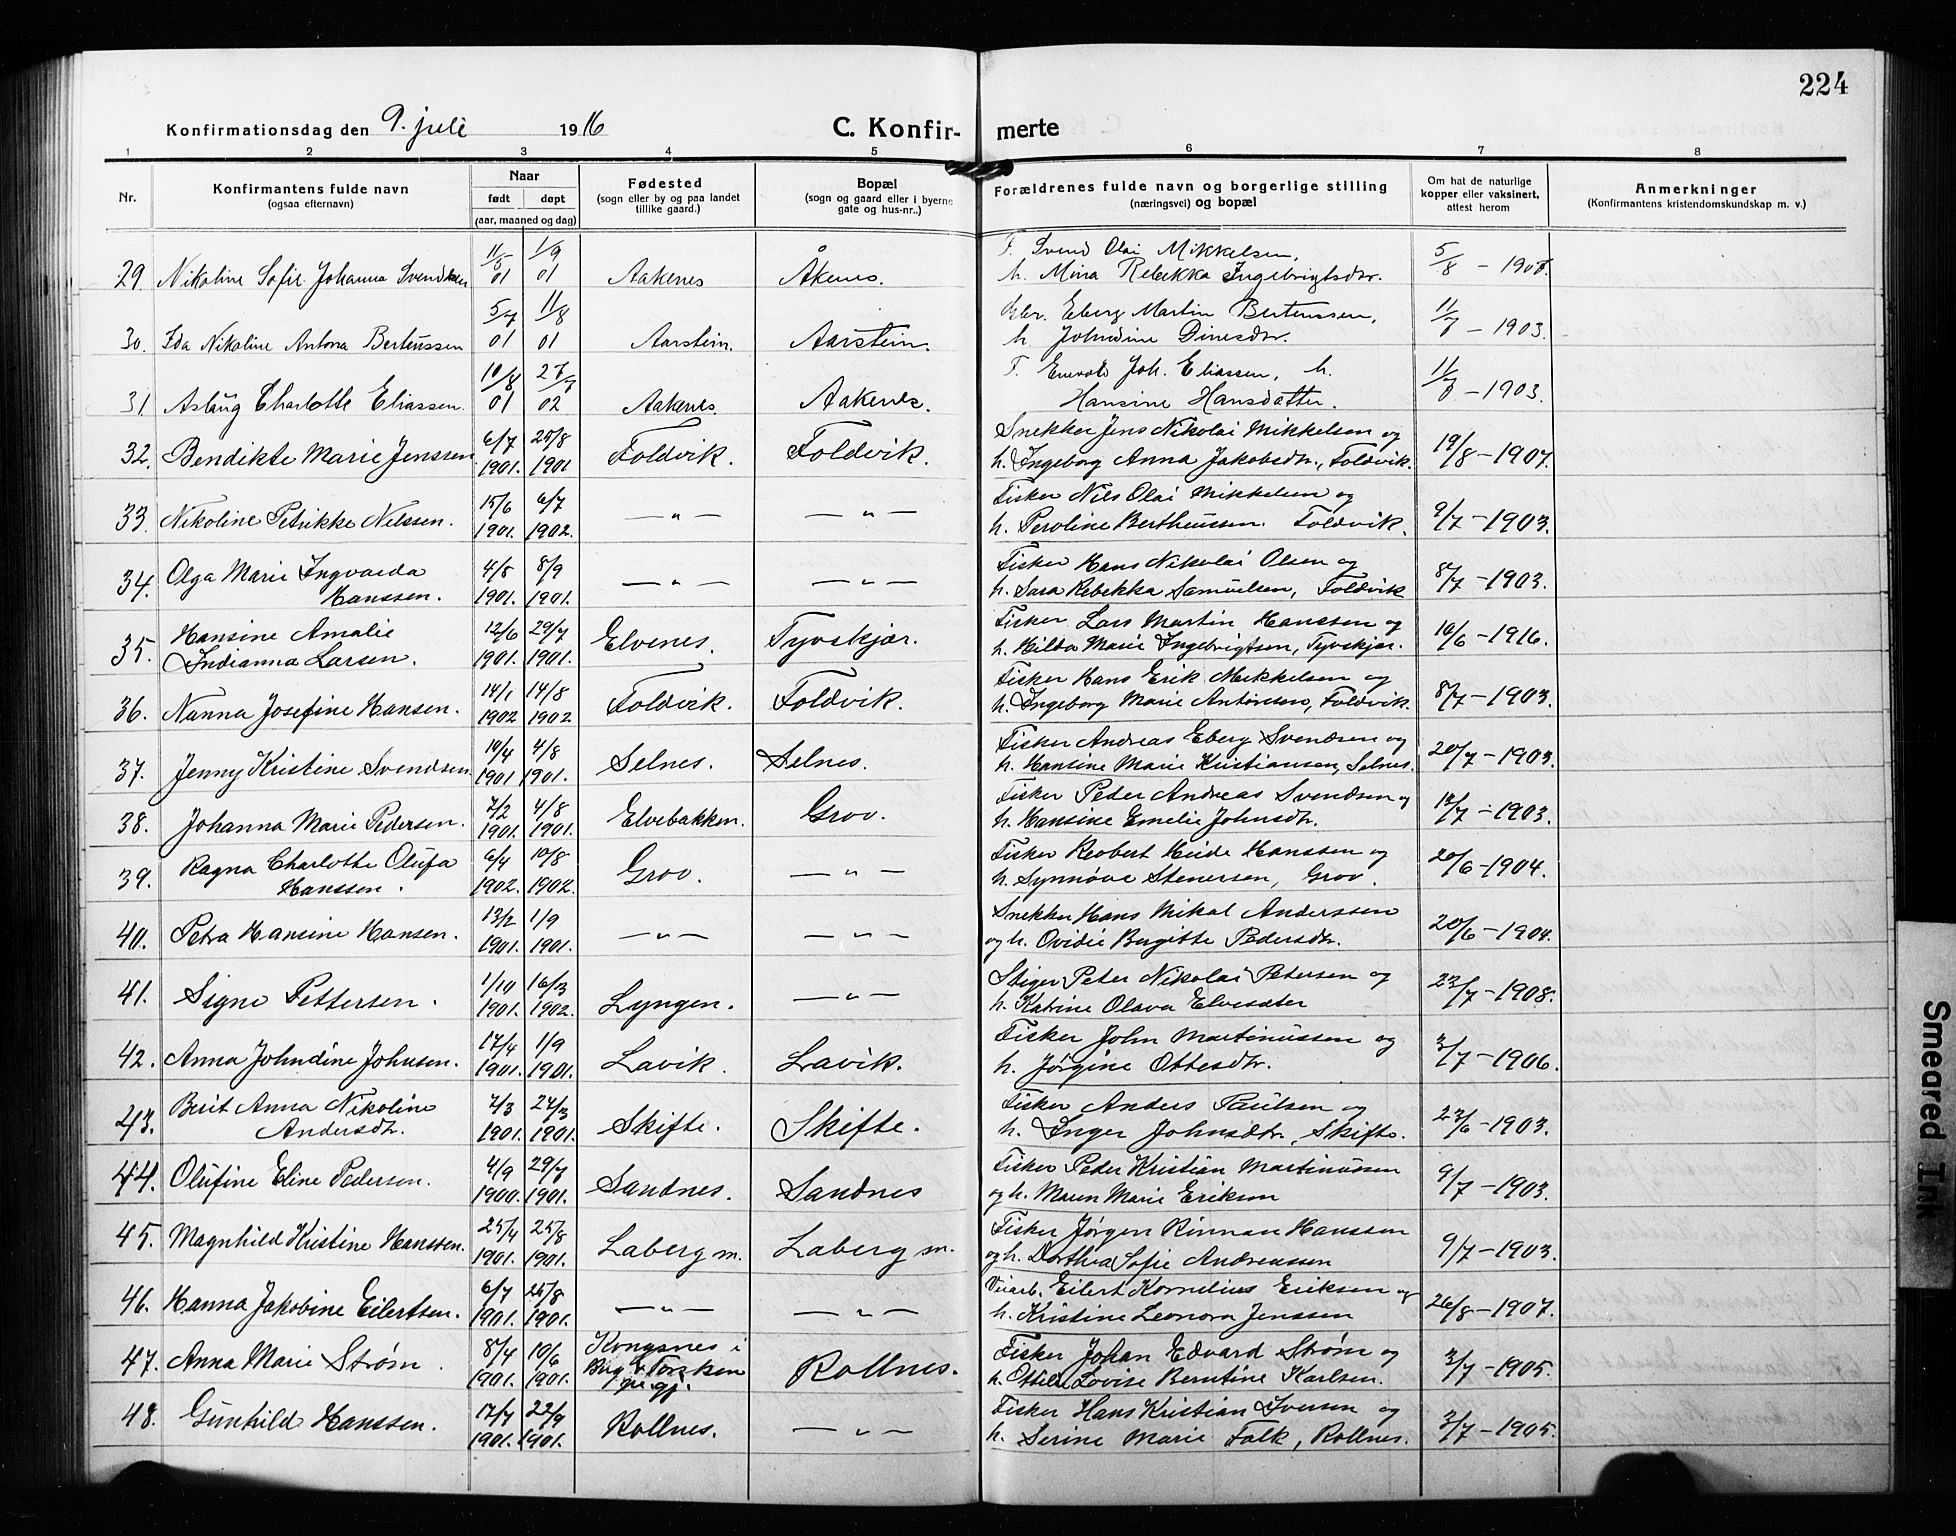 224
Konfirmationsdag den 9. juli 1916 C. Konfir- merte
1 2 3 4 5 6 7 8
Nr. Konfirmantens fulde navn (ogsaa efternavn) Naar født døpt (aar, maaned og dag) Fødested (sogn eller by og paa landet tillike gaard.) Bopæl (sogn og gaard eller i byerne gate og hus-nr..) Forældrenes fulde navn og borgerlige stilling (næringsvei) og bopæl Om hat de naturlige kopper eller vaksinert, attest herom Anmerkninger (Konfirmantens kristendomskundskap m. v.)
11/5 1/9 F. Svend Olai Mikkelsen, 5/8
29. Nikoline Sofie Johanna 01 01 Aakenes Åkenes. h. Mina Rebekka Ingebrigtsdtr.
5/7 11/8 Eberg Martin Bertenssen, 11/7 - 1903.
30. Ida Nikoline Antona Bertenssen 01 01 Aarstein. Aarstein. h. Johndine Dinesdtr.
10/8 27/7 F. Enevold Joh. Eliassen, h. - 1903.
31. Aslaug Charlotte Eliassen. 01 02 Aakenes. Aakenes. Hansine Hansdatter.
32. Bendikte Marie Jenssen 6/7 1901. 25/8 1901 Foldvik. Foldvik. Snekker Jens Nikolai Mikkelsen og 19/8 - 1907.
h. Ingeborg Anna Jakobsdtr., Foldvik.
33. Nikoline Petrikke Nilssen. 15/6 1901. 6/7 1902. —„— —„— Fisker Nils Olai Mikkelsen og 9/7 - 1903.
h. Peroline Bertheussen. Foldvik.
34. Olga Marie Ingvarda Hanssen. 4/8 1901. 8/9 1901. —„— —„— Fisker Hans Nikolai Olsen og 8/7 - 1903.
h. Sara Rebekka Samuelsen, Foldvik
35. Hansine Amalie Indianna Larsen. 12/6 1901. 29/7 1901. Elvenes. Tyvskjær. Fisker Lars Martin Hanssen og 16/6 - 1916.
h. Hilda Marie Ingebrigtsen, Tyvskjær.
36. Nanna Josefine Hansen. 14/1 1902 14/8 1902 Foldvik. Foldvik. Fisker Hans Erik Mikkelsen og 8/7 - 1903.
h. Ingeborg Marie Antonsen, Foldvik.
37. Jenny Kristine Svendsen 10/4 1901 4/8 1901. Selnes. Selnes. Fisker Andreas Eberg Svendsen og 20/7 - 1903.
h. Hansine Marie Kristiansen, Selnes.
38. Johanna Marie Pedersen. 7/2 1901. 4/8 1901. Elvebakken. Grov. Fisker Peder Andreas Svendsen og 13/7 - 1903.
h. Hansine Emelie Johnsdtr.
39. Ragna Charlotte Olufa Hanssen. 6/4 1902. 10/8 1902. Grov. —„— Fisker Robert Heide Hanssen og 20/6 - 1904.
h. Synnøve Stenersen, Grov.
40. Petra Hansine Hansen. 13/2 1901. 1/9 1901. —„— —„— Snekker Hans Mikal Anderssen 20/6 - 1904.
og h. Ovidie Birgitte Pedersdtr.
41. Signe Pettersen. 1/10 1901. 16/3 1902. Lyngen. —„— Stiger Peter Nikolai Petersen og 23/7 - 1908.
h. Katrine Olava Elvesæter
42. Anna Johndine Johnsen. 17/4 1901. 1/9 1901. Lavik. Lavik. Fisker John Martinussen og 3/7 - 1906.
h. Jørgine Ottesdtr.
43. Berit Anna Nikoline Andersdtr. 7/3 1901. 24/3 1901. Skifte. Skifte. Fisker Anders Paulsen og 23/6 - 1903.
h. Inger Johnsdtr., Skifte.
44. Olufine Eline Pedersen. 4/9 1900. 29/7 1901. Sandnes. Sandnes Fisker Peder Kristian Martinussen 9/7 - 1903.
og h. Maren Marie Eriksen
45. Magnhild Kristine Hanssen. 25/4 1901. 25/8 1901. Laberg m. Laberg m. Fisker Jørgen Rinnan Hanssen 9/7 - 1903.
og h. Dorthea Sofie Andreassen
46. Hanna Jakobine Eilertsen. 6/7 1901. 25/8 1901. —„— —„— Veiarb. Eilert Kornelius Eriksen og 26/8 - 1907.
h. Kristine Leonora Jenssen
47. Anna Marie Strøm. 8/4 1901. 10/6 1901. Kongsnes i Torsken pr.gj. Rollnes. Fisker Johan Edvard Strøm og 3/7 - 1905.
h. Lovise Berntine Karlsen.
48. Gunhild Hanssen. 17/7 1901. 22/9 1901. Rollnes. —„— Fisker Hans Kristian Iversen og 3/7 - 1905.
h. Serine Marie Falk, Rollnes.
Smeared Ink